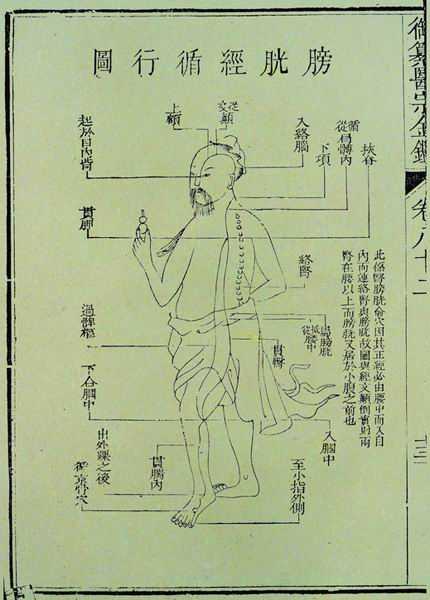 御纂醫宗金鑑
卷八十二
膀胱經循行圖
挾脊
循
從
肩髆內
下項
入絡腦
上額
起於目內眥
貫胂
絡腎
此係腎膀胱俞穴因其正經必由腰中而入自
內而連絡腎與膀胱故圖與經文顛倒實則兩
腎在腰以上而膀胱又居於小腹之前也
屬膀胱
貫臀
過髀樞
下合膕中
入膕中
出外踝之後
循京骨穴
貫腨內
至小指外側